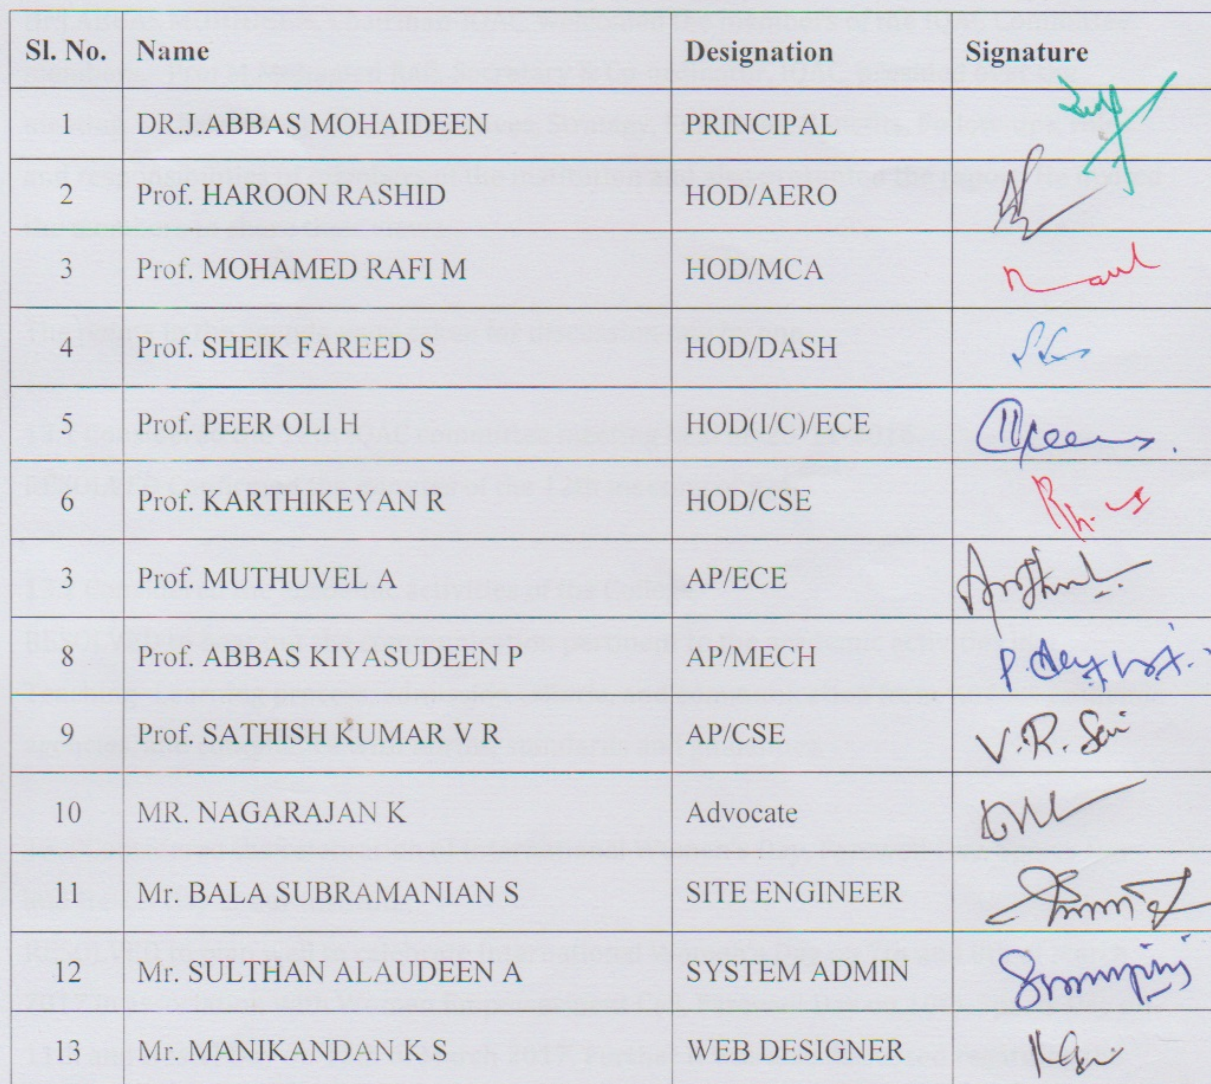 Sl. No. Name Designation Signature
1 DR.J.ABBAS MOHAIDEEN PRINCIPAL
2 Prof. HAROON RASHID HOD/AERO
3 Prof. MOHAMED RAFI M HOD/MCA
4 Prof. SHEIK FAREED S HOD/DASH
5 Prof. PEER OLI H HOD(I/C)/ECE
6 Prof. KARTHIKEYAN R HOD/CSE
3 Prof. MUTHUVEL A AP/ECE
8 Prof. ABBAS KIYASUDEEN P AP/MECH
9 Prof. SATHISH KUMAR V R AP/CSE V.R. Sai
10 MR. NAGARAJAN K Advocate
11 Mr. BALA SUBRAMANIAN S SITE ENGINEER
12 Mr. SULTHAN ALAUDEEN A SYSTEM ADMIN
13 Mr. MANIKANDAN K S WEB DESIGNER